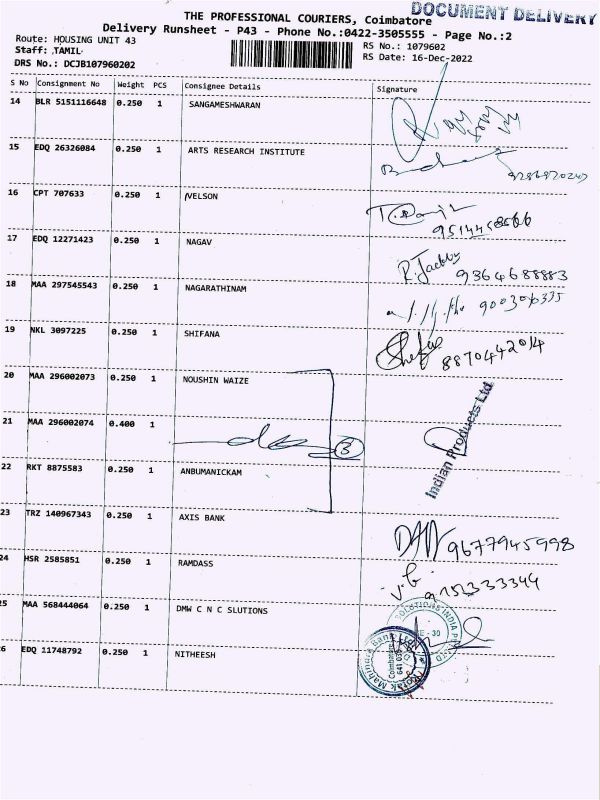 DOCUMENT DELIVERY
THE PROFESSIONAL COURIERS, Coimbatore
Delivery Runsheet - P43 - Phone No.:0422-3505555 - Page No.:2
Route: HOUSING UNIT 43
Staff: TAMIL
DRS No.: DCJB107960202
RS No.: 1079602
RS Date: 16-Dec-2022
S No Consignment No Weight PCS Consignee Details Signature
14 BLR 5151116648 0.250 1 SANGAMESHWARAN
15 EDQ 26326084 0.250 1 ARTS RESEARCH INSTITUTE
16 CPT 707633 0.250 1 VELSON
17 EDQ 12271423 0.250 1 NAGAV
9364688883
18 MAA 297545543 0.250 1 NAGARATHINAM
19 NKL 3097225 0.250 1 SHIFANA
8870442014
20 MAA 296002073 0.250 1 NOUSHIN WAIZE
21 MAA 296002074 0.400 1
3
Indian Products Ltd
22 RKT 8875583 0.250 1 ANBUMANICKAM
23 TRZ 140967343 0.250 1 AXIS BANK
9677945998
24 HSR 2585851 0.250 1 RAMDASS
25 MAA 568444064 0.250 1 DMW C N C SLUTIONS
26 EDQ 11748792 0.250 1 NITHEESH
Kotak Mahindra Bank Ltd
Coimbatore